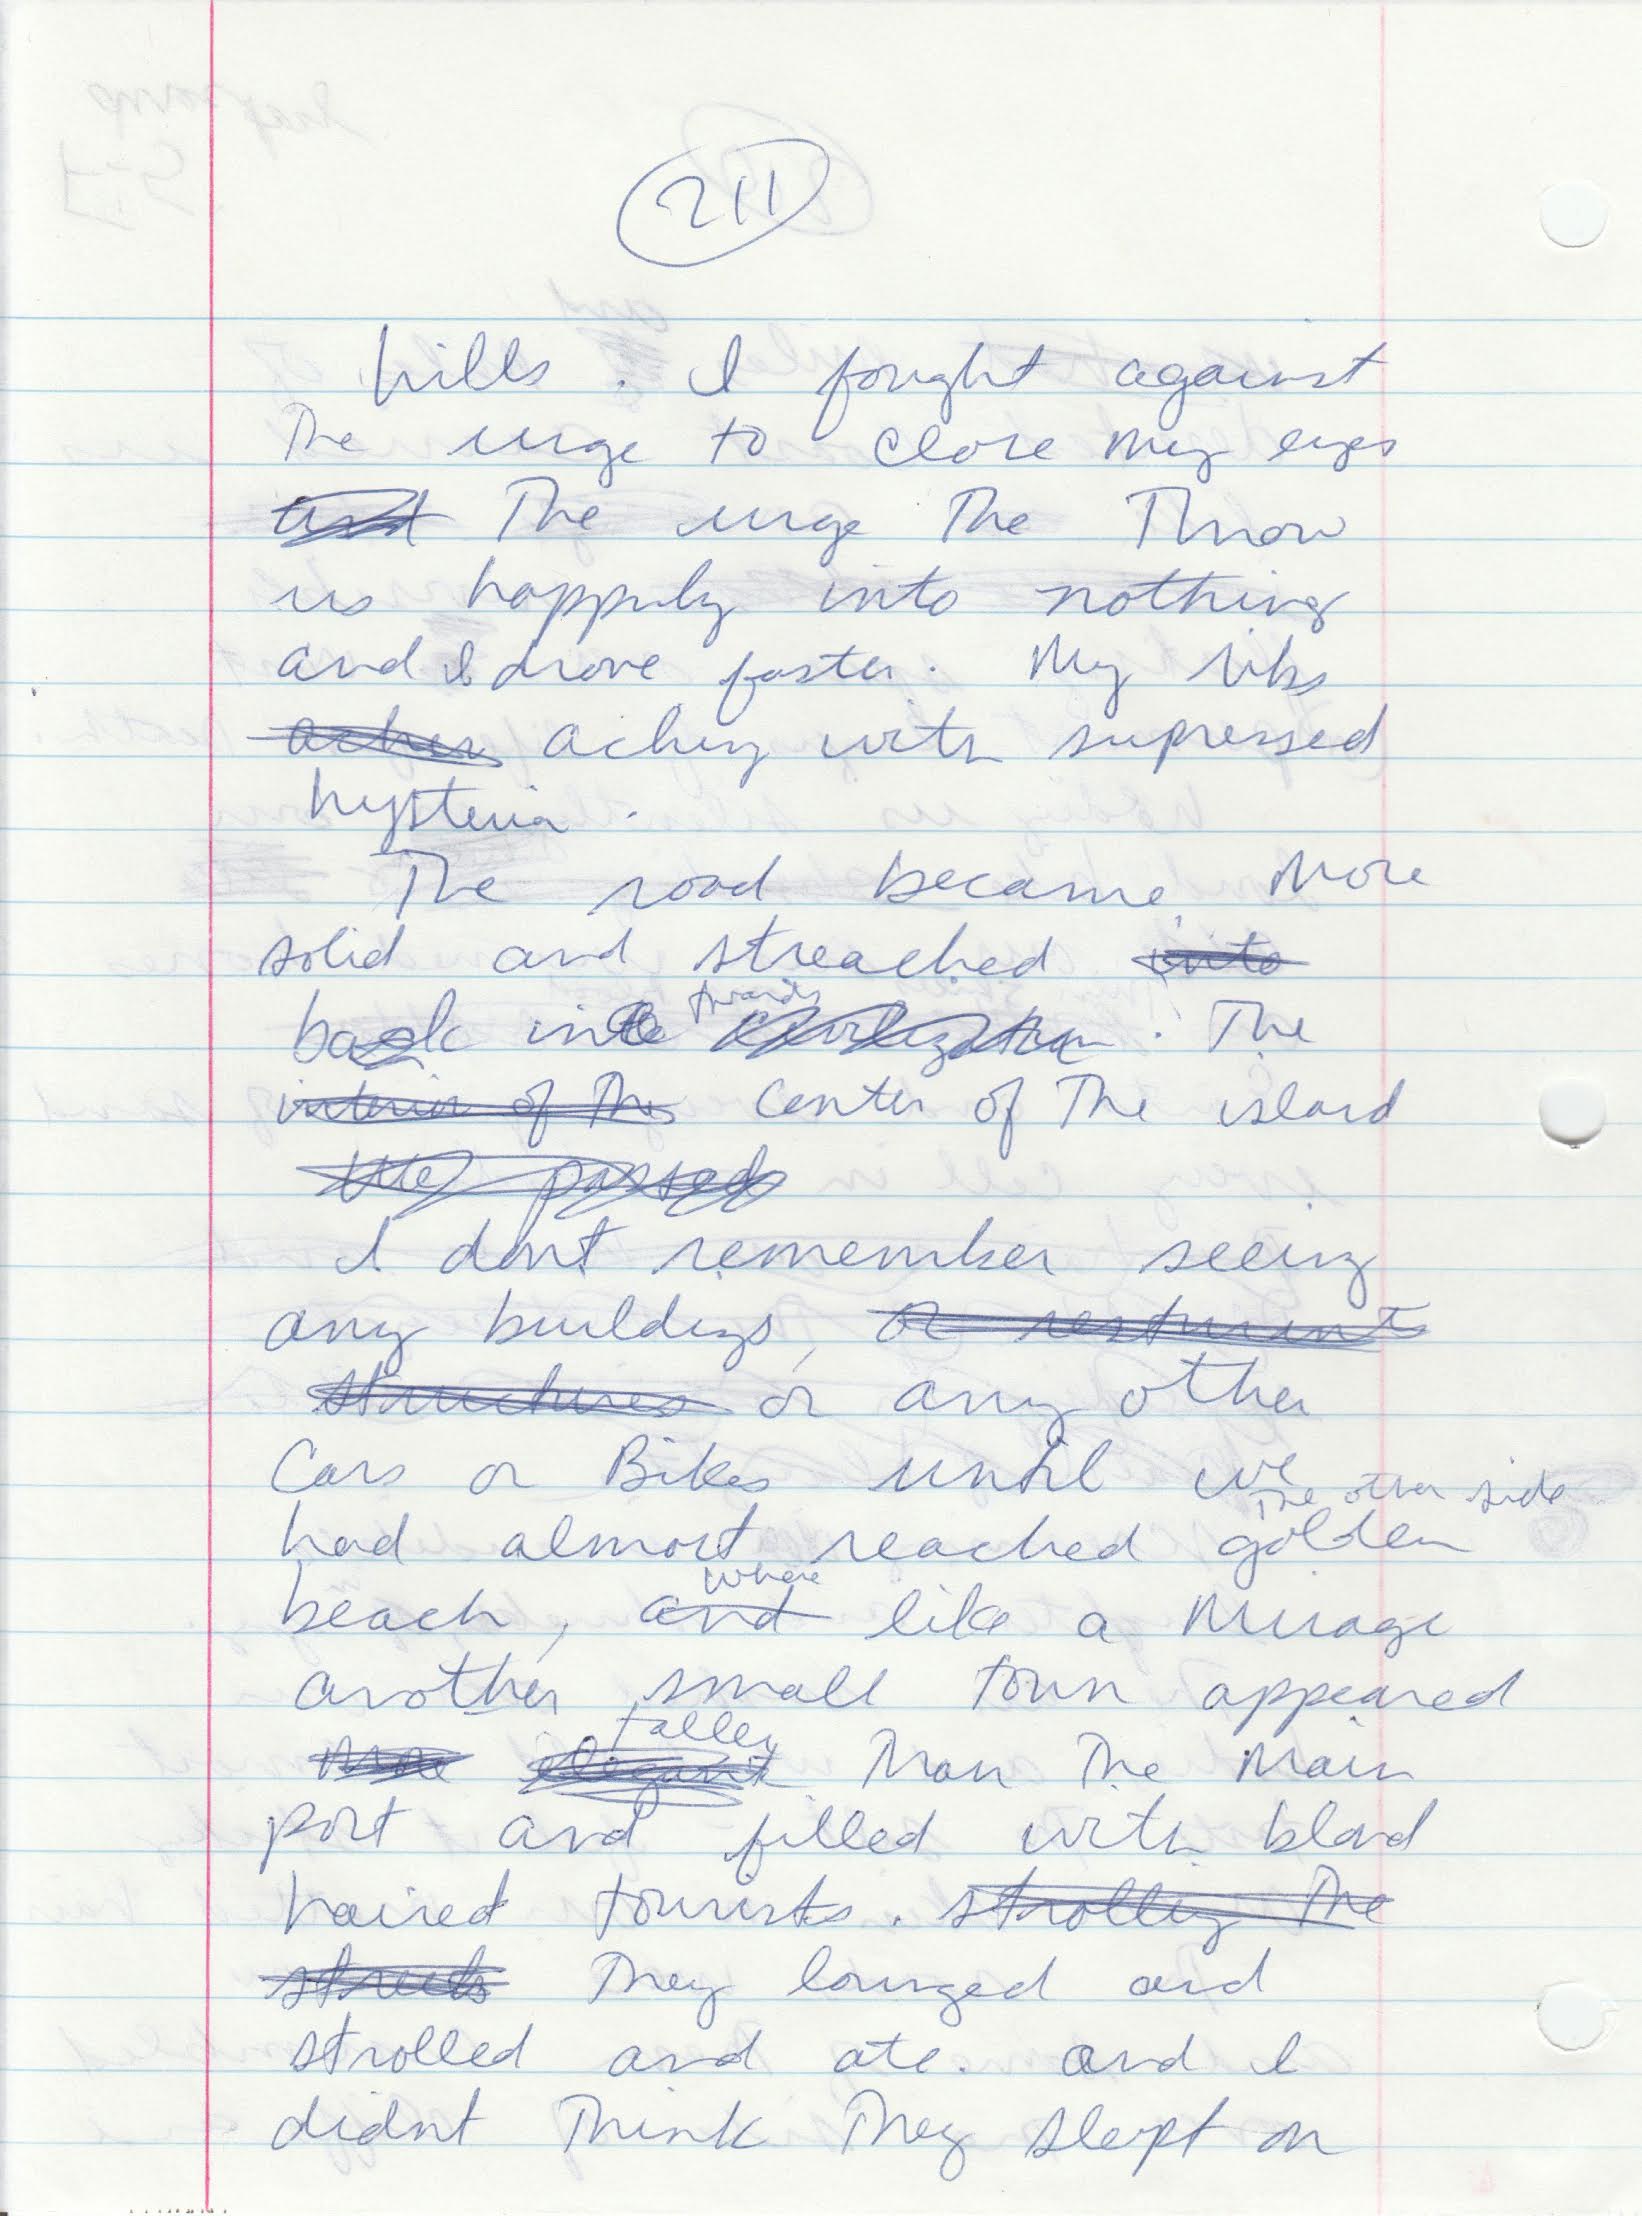 211
hills. I fought against
The urge to close my eyes
and The urge The Throw
us happily into nothing
and I drove faster. My ribs
aches aching with supressed
hysteria.
The road became more
solid and streached into
back into towards civilization. The
interior of the center of The island
We passed
I dont remember seeing
any buildings, or resturants
structures or any other
Cars or Bikes until we
The other side
had almost reached golden
where
beach, and like a Mirage
another small town appeared
taller
more elegant Than The Main
port and filled with blond
haired tourists. strolling the
streets They lounged and
strolled and ate. and I
didnt Think They slept on